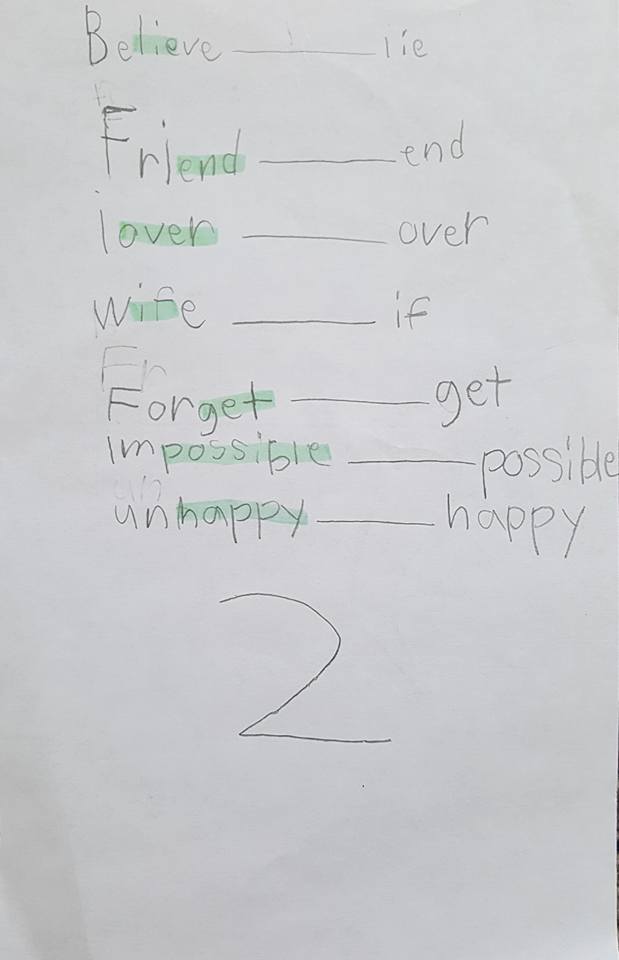 Believe ______ lie
Friend ______ end
lover ______ over
wife ______ if
Fr
Forget ______ get
impossible ______ possible
un
unhappy ______ happy
2